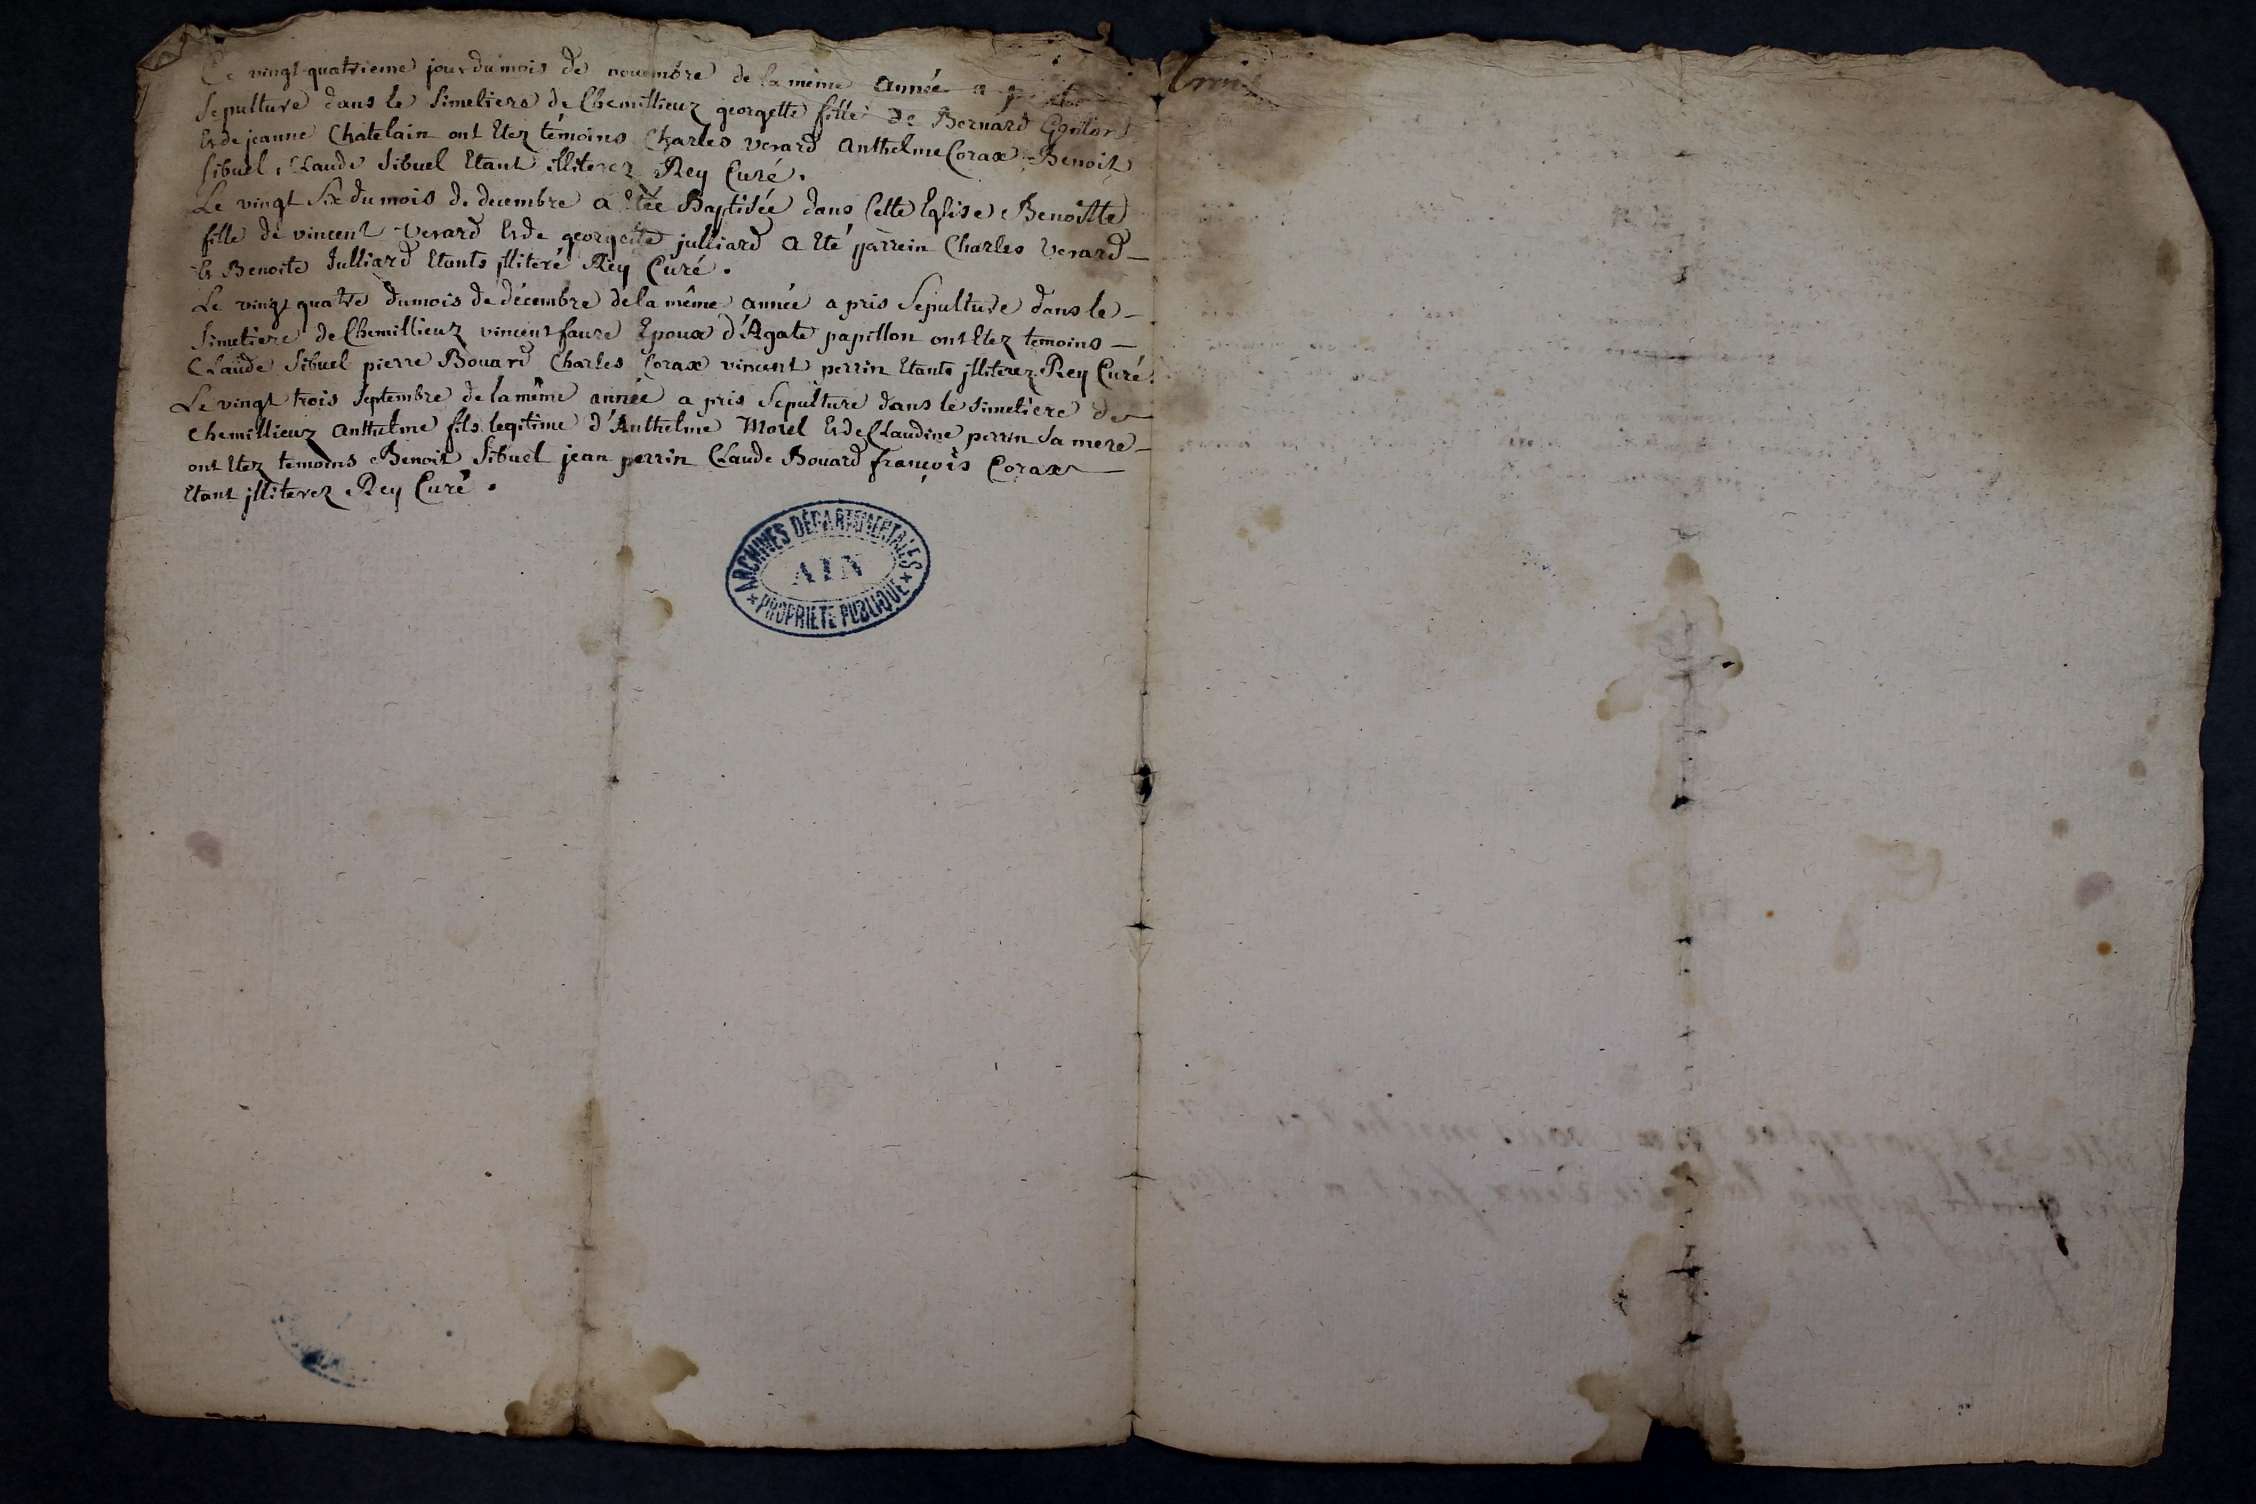 Ce vingt-quatrieme jour du mois de novembre de la même année a
Sepulture dans le Simetiere de Chemillieuz georgette fille de Bernard
Et de jeanne Chatelain ont Etez témoins Charles verard Anthelme Corax Benoit
Sibuel, Claude Sibuel Etant illiterez Rey Curé.
Le vingt Six du mois de decembre a Etée Baptisée dans Cette Eglise Benoitte
fille de vincent verard Et de georgette julliard a Eté parrein Charles verard
Et Benoite Julliard Etants jlliteré Rey Curé.
Le vingt quatre du mois de décembre de la même année a pris Sepulture dans le
Simetiere de Chemillieuz vincent faure Epoux d'Agate papillon ont Etez temoins
Claude Sibuel pierre Bouard Charles Corax vincent perrin Etants jlliterez Rey Curé.
Le vingt trois Septembre de la même année a pris Sepulture dans le simetiere de
Chemillieuz Anthelme fils legitime d'Anthelme Morel Et de Claudine perrin Sa mere
ont Etez temoins Benoit Sibuel jean perrin Claude Bouard françois Corax
Etant jlliterez Rey Curé.
ARCHIVES DÉPARTEMENTALES
AIN
PROPRIÉTÉ PUBLIQUE